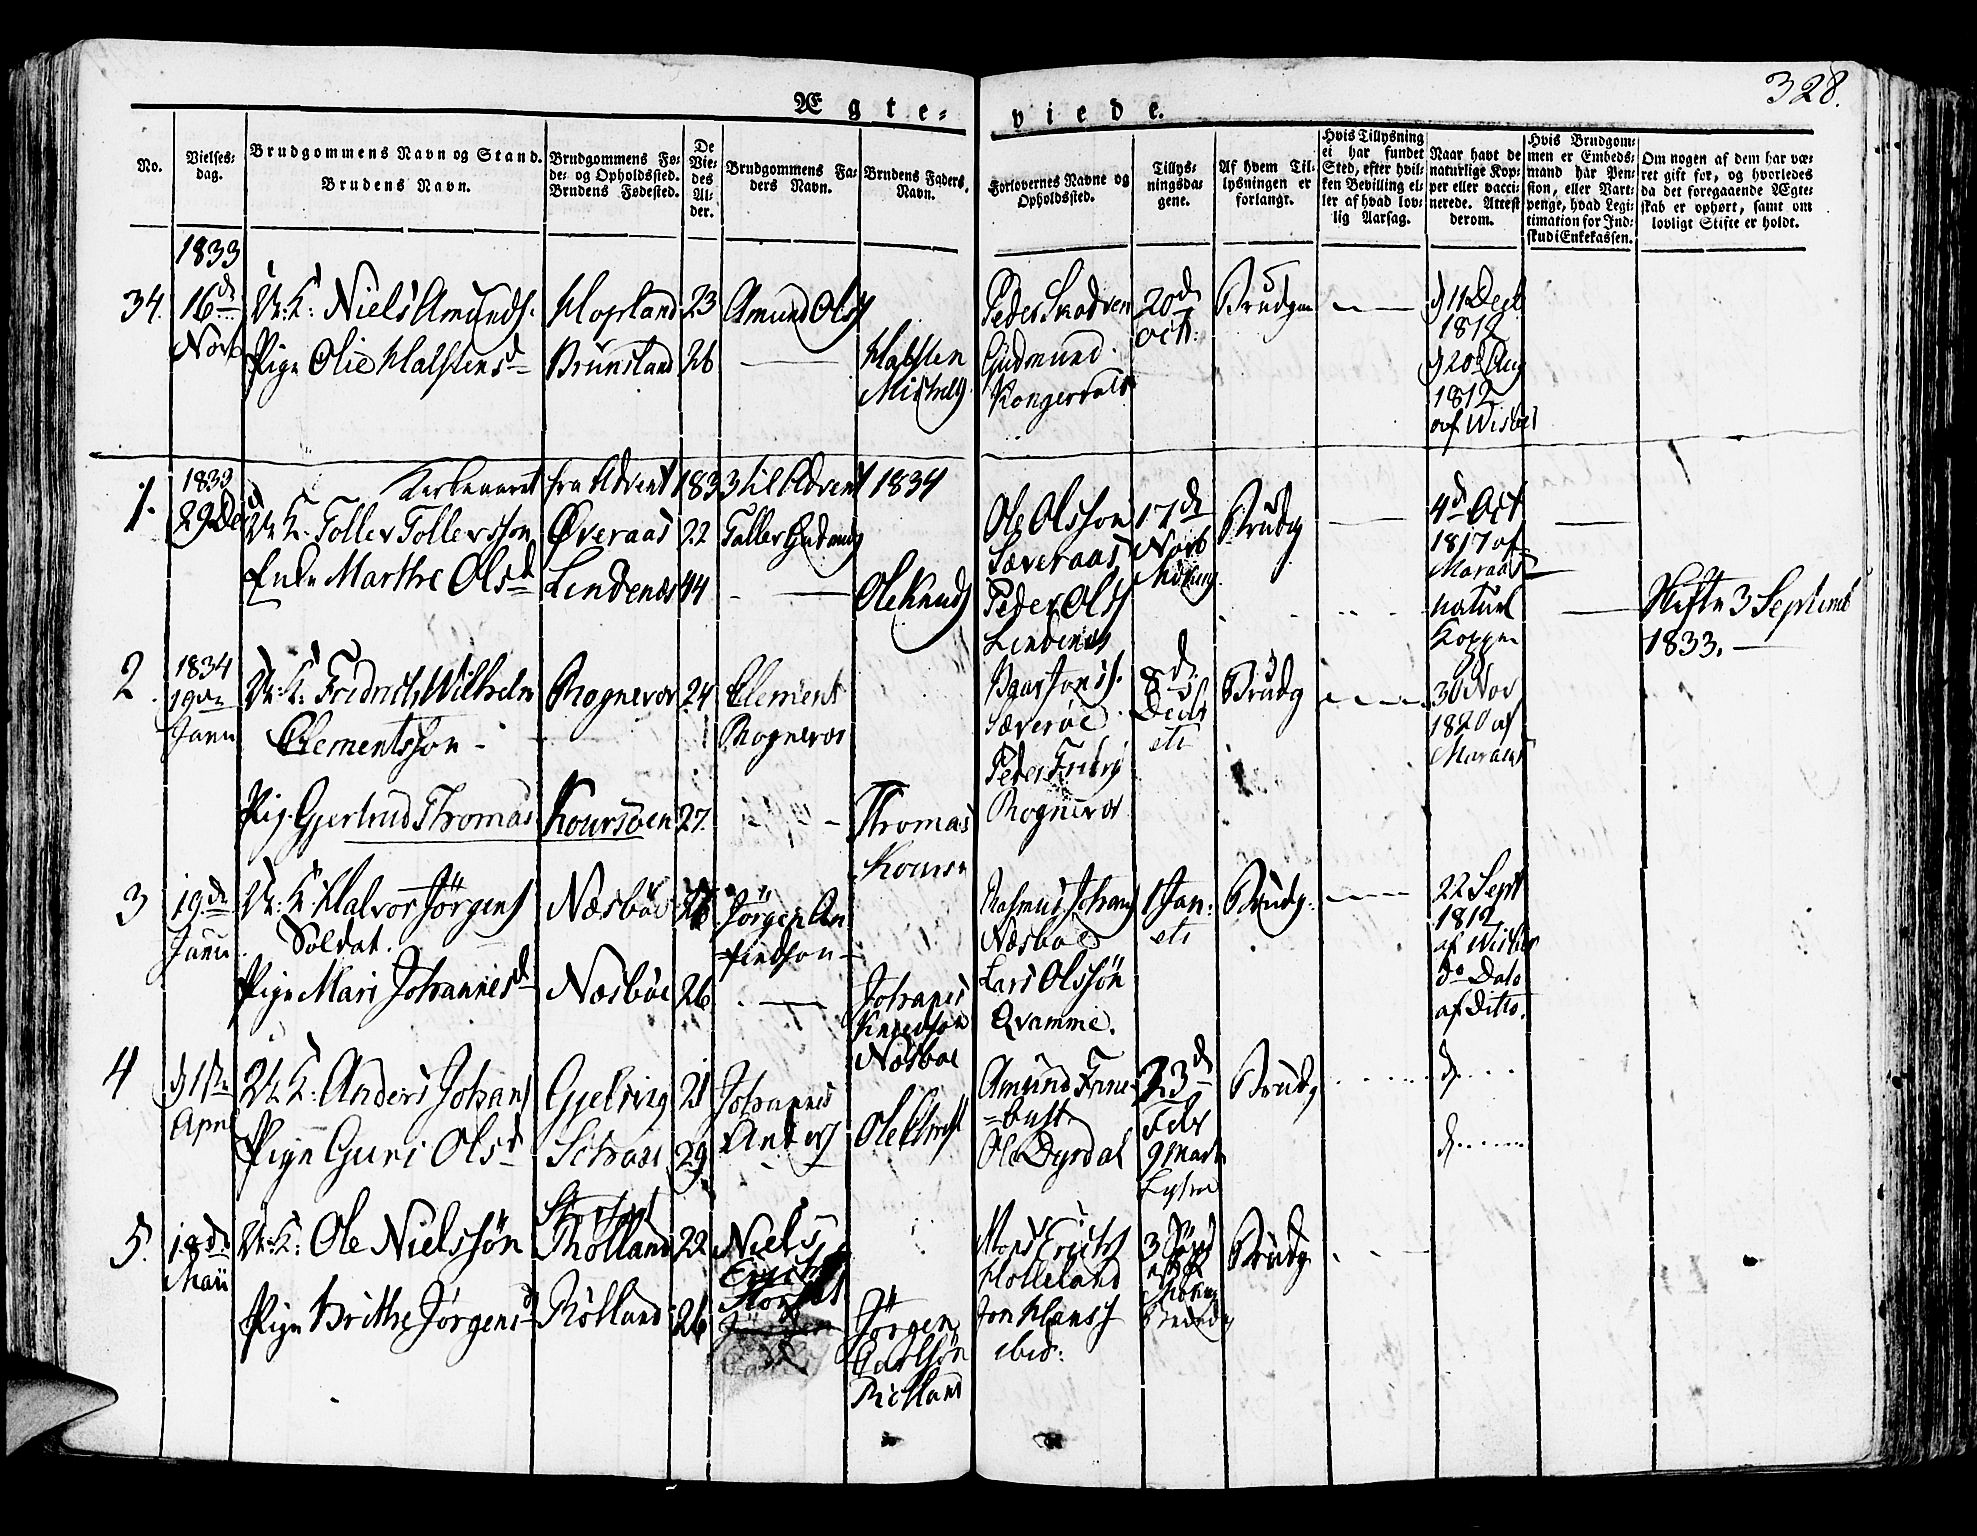 328.
Ægte-
viede.
No.
Vielses-
dag.
Brudgommens Navn og Stand.
Brudens Navn.
Brudgommens Fø-
de- og Opholdssted.
Brudens Fødested.
De
Vie-
des
Al-
der.
Brudgommens Fa-
ders Navn.
Brudens Faders
Navn.
Forlovernes Navne og
Opholdssted.
Tillys-
ningsda-
gene.
Af hvem Til-
lysningen er
forlangt.
Hvis Tillysning
ei har fundet
Sted, efter hvil-
ken Bevilling el-
ler af hvad lov-
lig Aarsag.
Naar havt de
naturlige Kop-
per eller vacci-
nerede. Attest
derom.
Hvis Brudgom-
men er Embeds-
mand har Pen-
sion, eller Vart-
penge, hvad Legi-
timation for Ind-
skud i Enkekassen.
Om nogen af dem har væ-
ret gift før, og hvorledes
da det foregaaende Ægte-
skab er ophørt, samt om
lovligt Skifte er holdt.
1833
34. 16de Novb
U. K. Niels Amunds.
Pige Olie Halstensd
Hopland
Brunsland
23
26
Amund Ols
Halsten
Michels.
Peder
Gudmund
Kongerdals
20de
Oct.
Brudgm
d 11 Decb
1812
d 20d Aug
1812
af Wisbes
Kirkeaaret fra Advent 1833 til Advent 1834
1. 1833
29 Dec
U. K. Toller Tollersson
Enke Marthe Olsd
Øveraas
Lindenæs
22
44
Toller
Ole Knuds
Ole Olsson
Sæveraas
Peder Ols
Lindenæs
17de
Novb
Brudg
4de Oct
1817 af
Maraas
naturl
Kopper
Skifte 3 Septemb
1833.
2. 1834
19de
Janu
U. K. Fredrich Wilhelm
Clementsson
Pig. Gjertrud Thomas
Rognevær
Koursøen
24
27.
Clement
Rognevær
Thomas
Koursn
Sæverøe
Peder
Rognevær
8de
Decb
etc
Brudg
30 Nov
1820 af
Maraas
3 19de
Janu
U. K. Halvor Jørgens
Soldat.
Pige Mari Johannesd
Næsbøe
Næsbøe
26
Jørgen An
findson
Johanes
Knudson
Næsboe
Rasmus Johans
Næsboe
Lars Olssøn
Qvamme.
1 Jan.
etc
Brudg.
22 Sept
1812
af Wisbes
do Dato
af ditto.
4 d 1ste
April
U. K. Anders Johans
Pige Guri Olsd
Gjelvig
21
29
Johannes
Anders
Amund Frne-
=bust
Ole Dyrdal
23d
Febr
9 Mart
Brudg
d.
d.
5. 18de
Maii
U. K. Ole Nielssøn
Pige Brithe Jørgensd
Rølland
Rølland
22
26
Niels
Jørgen
Carlsøn
Rølland
Mons Erichs
Holleland
Jon Hans
ibid:
3
Brudg